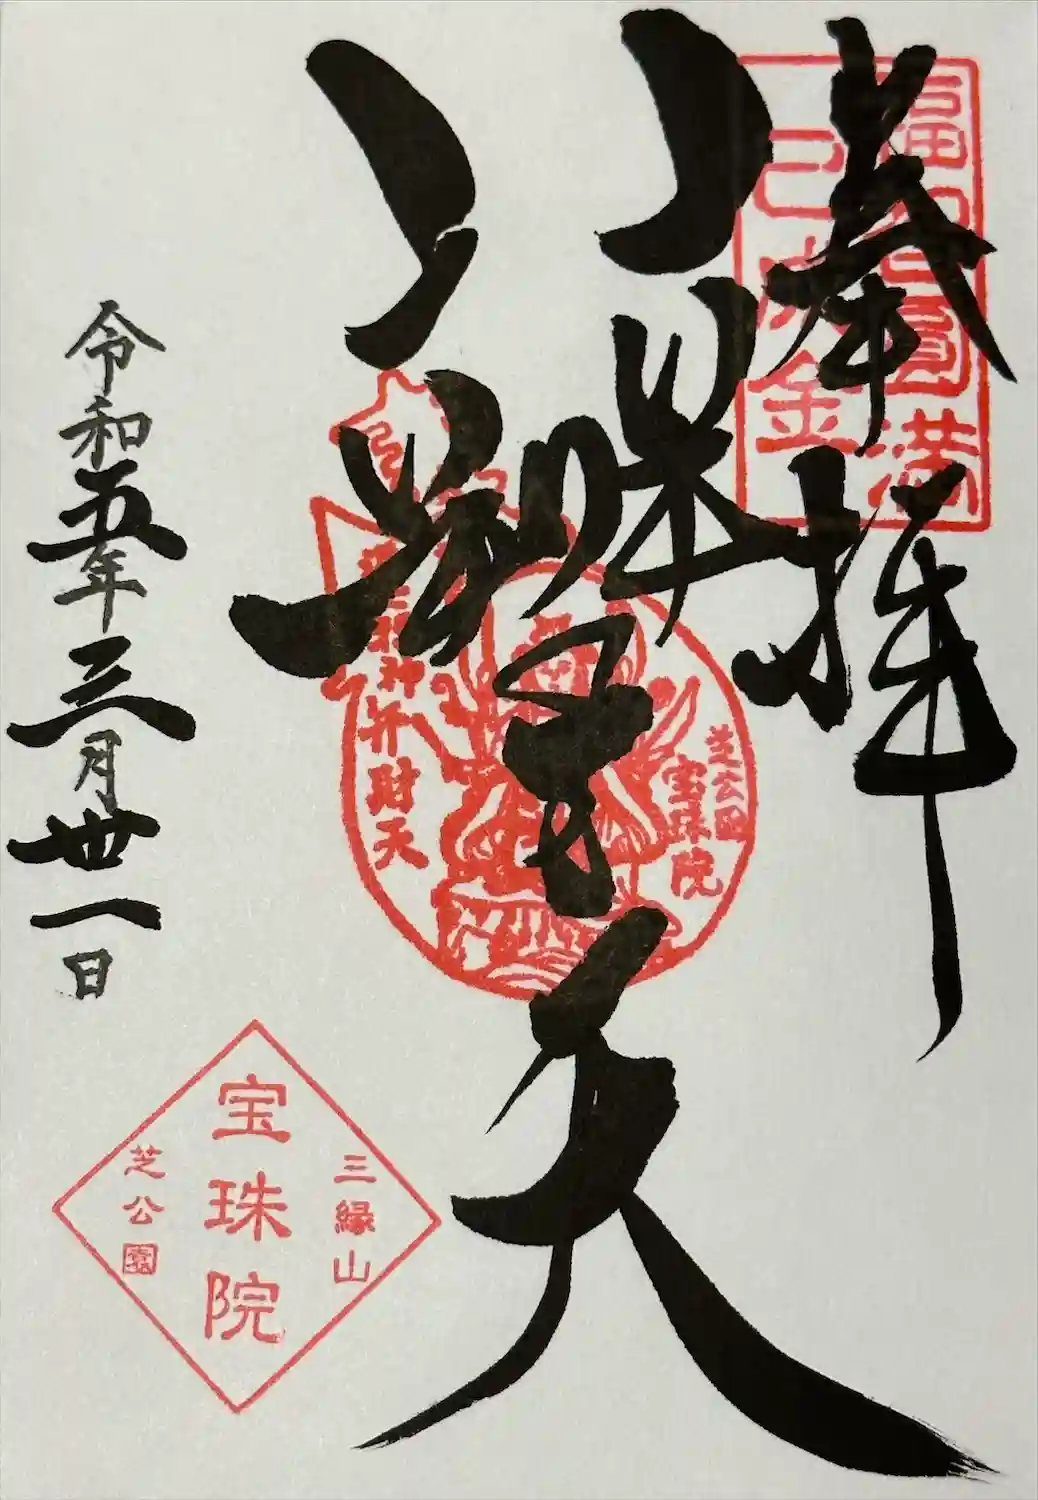 奉拝
福智圓満
巳成金
天
芝公園
宝珠院
弁財天
令和五年三月卅一日
三縁山
宝珠院
芝公園